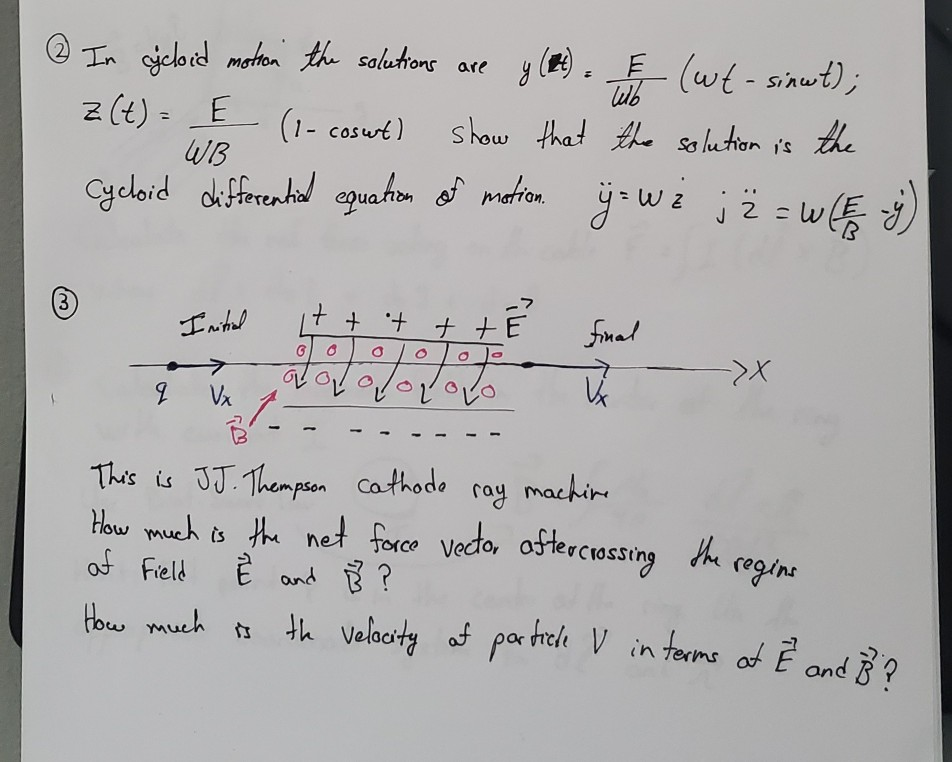 ② In cycloid motion the solutions are y(t) = E/Wb (wt - sinwt);
z(t) = E/WB (1 - coswt) show that the solution is the
Cycloid differential equation of motion. ÿ = w ż ; z̈ = w(E/B - ẏ)
③
Initial + + + + + E⃗ final
q Vx Vx X
B⃗ - - - - - - - -
This is JJ. Thompson cathode ray machine
How much is the net force vector aftercrossing the regins
of Field E⃗ and B⃗ ?
How much is th velocity of particle V in terms of E⃗ and B⃗ ?